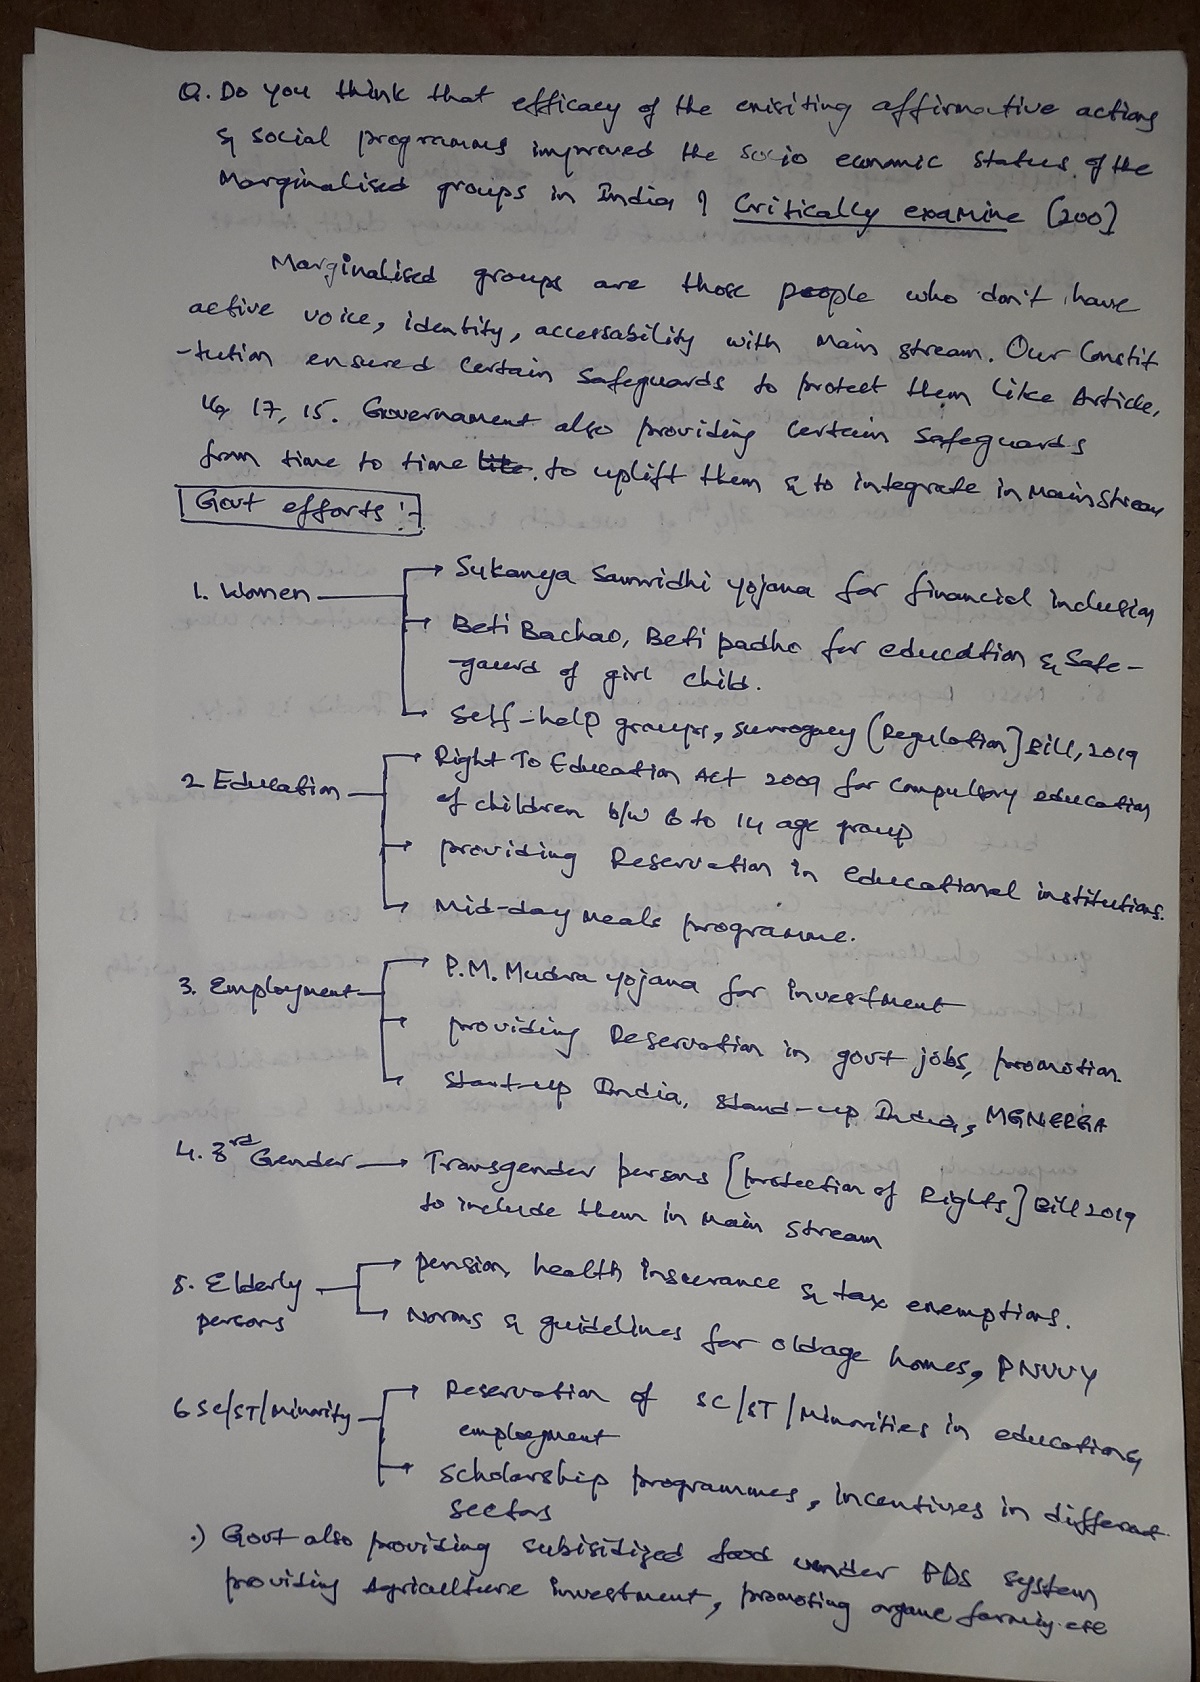 Q. Do you think that efficacy of the enisiting affirmative actions
& social programms improved the socio economic status of the
Marginalised groups in India ? Critically examine (200]
Marginalised groups are those people who don't have
active voice, identity, accessability with main stream. Our Constit
-tution ensured Certain Safeguards to protect them like Article,
16, 17, 15. Governament also providing Certain Safeguards
from time to time like. to uplift them & to integrate in Mainstream
Govt efforts :-
1. Women → Sukanya Samridhi yojana for financial inclusion
→ Beti Bachao, Beti padho for education & Safe-
-gaurd of girl child.
→ Self-help groups, surrogacy (Regulation] Bill, 2019
2 Education → Right To Education Act 2009 for Compulsory education
of children b/w 6 to 14 age group
→ providing Reservation in educational institutions.
→ Mid-day meals programme.
3. Employment → P.M. Mudra yojana for investment
→ providing Reservation in govt jobs, promotion
→ Start-up India, Stand-up India, MGNERGA
4. 3rd Gender → Transgender persons [protection of Rights] Bill 2019
to include them in main stream
5. Elderly → pension, health insurance & tax exemptions.
persons → Norms & guidelines for oldage homes, PNVVY
6 SC/ST/Minority → Reservation of SC/ST/Minorities in education,
employment
→ Scholarship programmes, incentives in different
Sectors
.) Govt also providing subisidized food under PDS system
providing Agriculture investment, promoting organc farmig etc